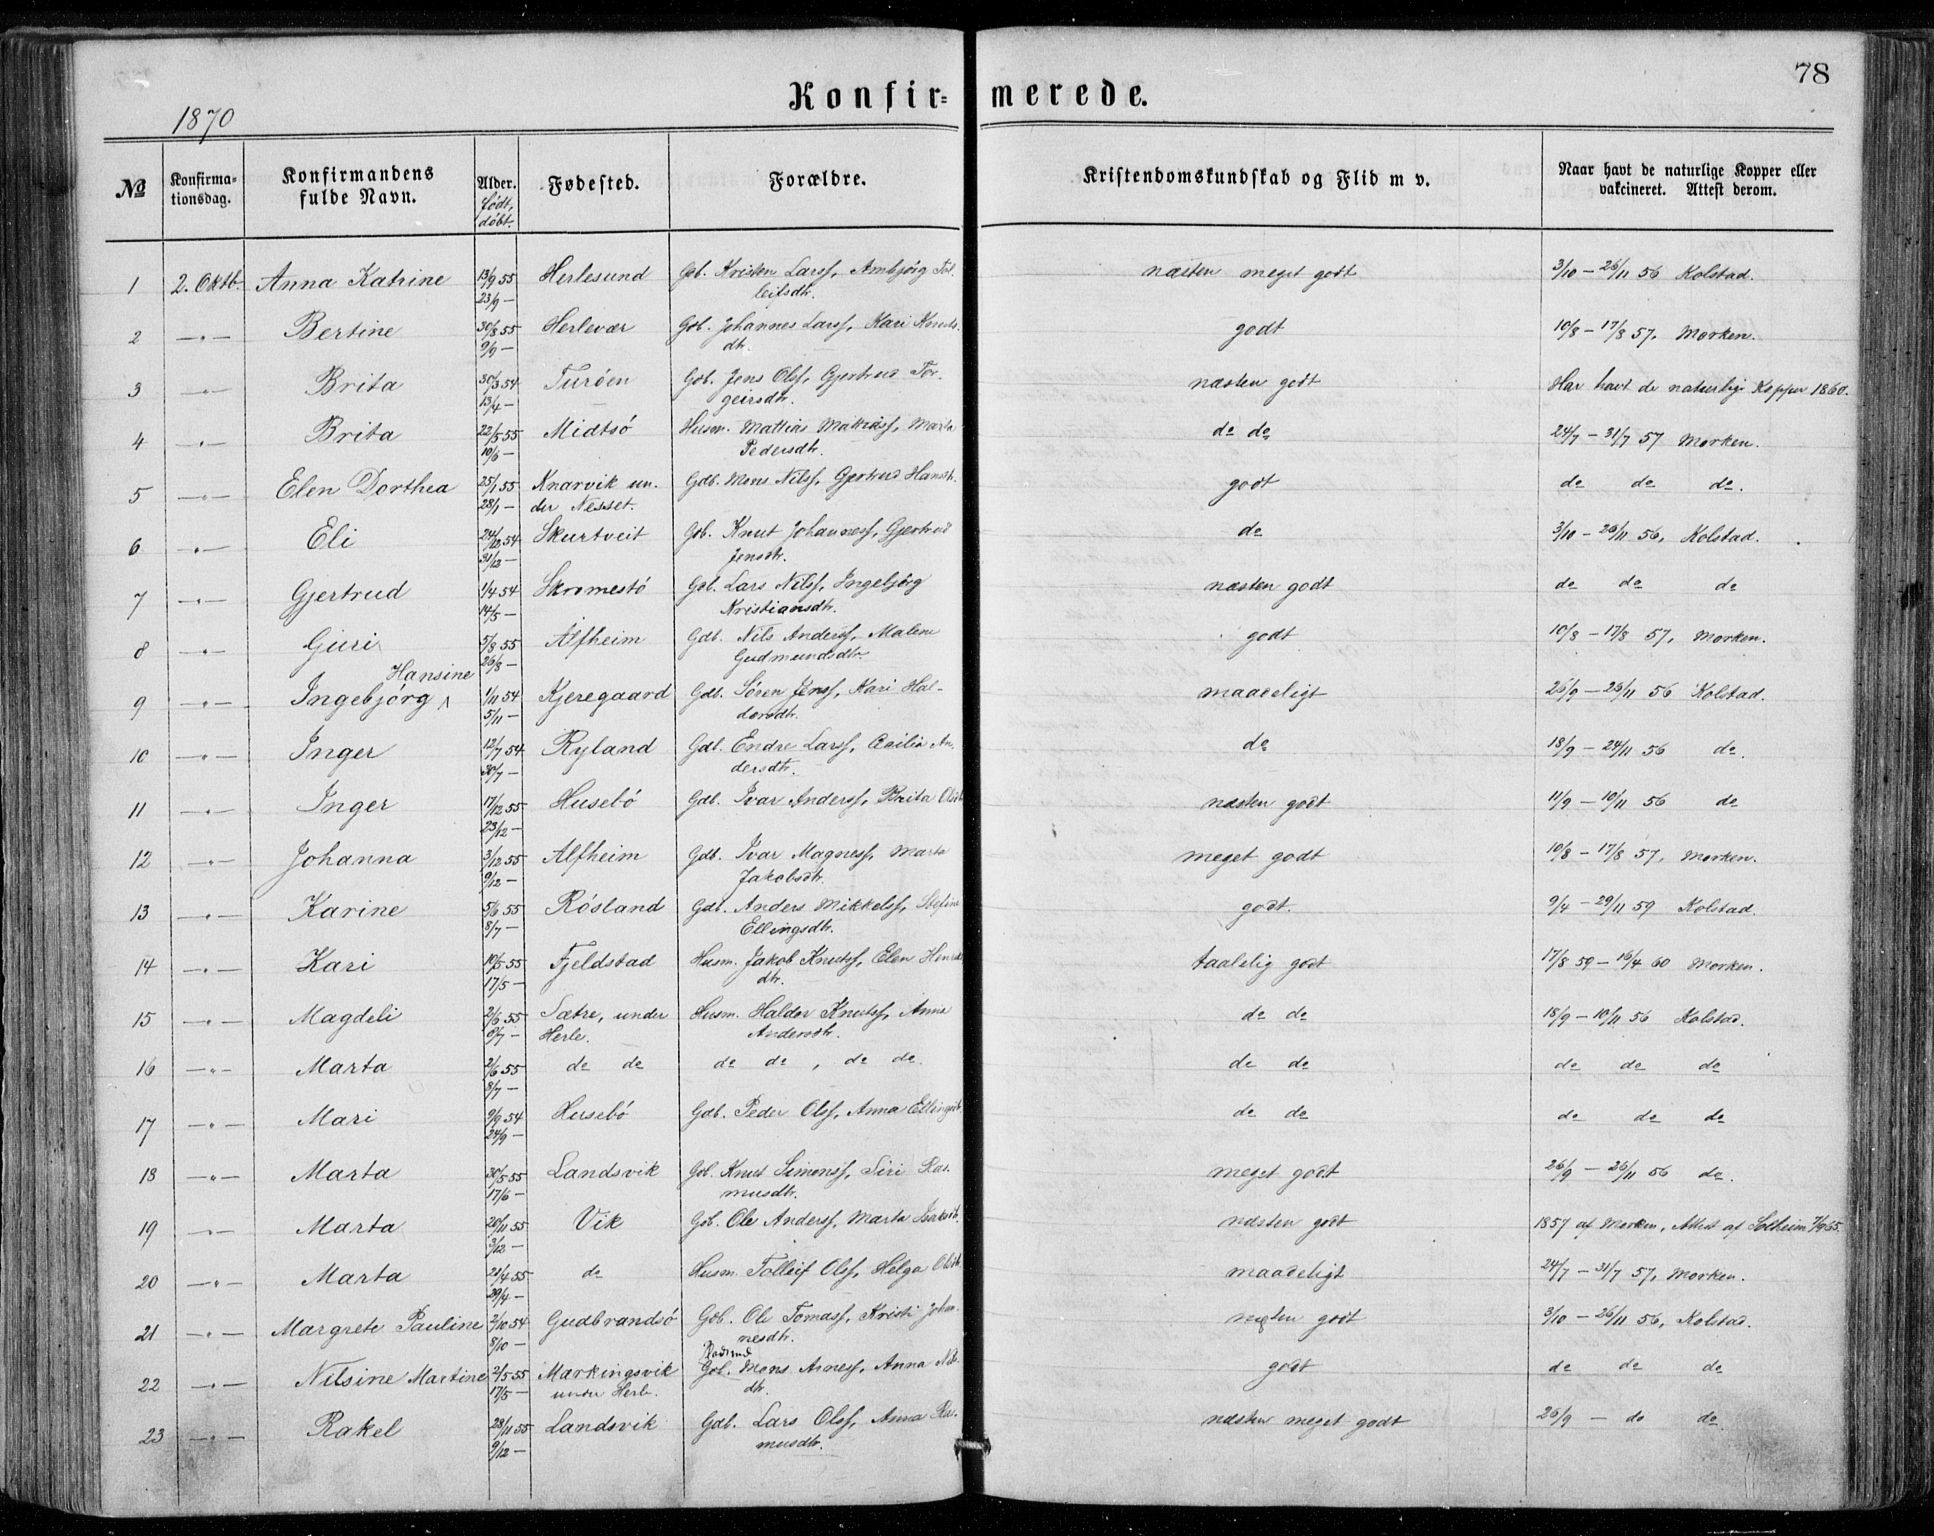 78
Konfir- merede.
1870
№ Konfirma-tionsdag. Konfirmandens fulde Navn. Alder. født, døbt. Fødested. Forældre. Kristendomskundskab og Flid m v. Naar havt de naturlige Kopper eller vakcineret. Attest derom.
1 2. Oktb. Anna Katrine 13/9 55 Herlesund Gb. Kristen Larss, Ambjørg Tol- næsten meget godt 3/10 – 26/11 56 Kolstad.
23/9 — leifsdtr.
2 —"— Bertine 30/8 55 Herlevær Gb. Johannes Larss, Kari Knuts- godt 10/8 – 17/8 57, Morken.
9/9 — dtr.
3 —"— Brita 30/3 54 Turøen Gdb. Jens Olss, Gjertrud Tor- næsten godt Har havt de naturlige Kopper 1860.
13/4 — geirsdtr.
4 —"— Brita 22/5 55 Midtsø Husm. Mattias Matiass, Marta do do 24/7 – 31/7 57 Morken.
10/6 — Pedersdtr.
5 —"— Elen Dorthea 25/1 55 Knarvik un- Gdb. Mons Nilss, Gjertrud Hansdtr. godt do do do.
28/1 — der Nesset.
6 —"— Eli 24/12 54 Skurtveit Gb. Knut Johanness, Gjertrud do 3/10 – 26/11 56, Kolstad.
31/12 — Jensdtr.
7 —"— Gjertrud 1/4 54 Skromestø Gb. Lars Nilss, Ingebjørg næsten godt do do do
14/5 — Kristiansdtr.
8 —"— Guri 5/8 55 Alfheim Gdb. Nils Anderss, Malene godt 10/8 – 17/8 57, Morken.
26/8 — Gudmundsdtr.
Hansine
9 —"— Ingebjørg ^ 1/11 54 Kjeregaard Gdb. Søren Jenss, Kari Hal- maadeligt 26/9 – 26/11 56 Kolstad.
5/11 — dorsdtr.
10 —"— Inger 12/7 54 Ryland Gdb. Endre Larss, Cecilia An- do 18/9 – 24/11 56 do.
30/7 — dersdtr.
11 —"— Inger 17/12 55 Husebø Gdb. Ivar Anderss, Brita Olsdtr næsten godt 11/9 – 10/11 56 do
23/12 —
12 —"— Johanna 3/12 55 Alfheim Gdb. Ivar Magness, Marta meget godt 10/8 – 17/8 57, Morken.
9/12 — Jakobsdtr.
13 —"— Karine 5/6 55 Røsland Gdb. Anders Mikkelss, godt. 9/4 – 29/11 59 Kolstad.
8/7 — Ellingsdtr.
14 —"— Kari 10/5 55 Fjeldstad Husm. Jakob Knutss, Elen Henriks taalelig godt 17/8 59 – 16/4 60 Morken.
17/5 — dtr.
15 —"— Magdeli 2/6 55 Sætre, under Husm. Haldor Knutss, Anna do do 18/9 – 10/11 56 Kolstad.
8/7 — Herle. Andersdtr.
16 —"— Marta 2/6 55 do do do do , do do do do do do do
8/7 —
17 —"— Mari 9/9 54 Husebø Gdb. Peder Olss, Anna Ellingsdtr. do do do do do
24/9 —
18 —"— Marta 30/5 55 Landsvik Gb. Knut Simonss, Siri Ras- meget godt 26/9 – 26/11 56 do.
17/6 — musdtr.
19 —"— Marta 20/11 55 Vik Gb. Ole Anderss, Marta næsten godt 1857 af Morken, Attest af Solheim 7/9 65.
3/12 —
20 —"— Marta 21/4 55 do Husm. Tolleif Olss, Helga Olsdtr maadeligt 24/7 – 31/7 57, Morken.
29/4 —
21 —"— Margrete Pauline 2/10 54 Gudbrandsø Gb. Ole Tomass, Kristi Johan- næsten godt 3/10 – 26/11 56, Kolstad.
8/10 — nesdtr.
22 —"— Nilsine Martine 2/5 55 Markingsvik Gb. Mons Arness, Anna Nils- godt do do do
17/5 — under Herle. dtr.
23 —"— Rakel 28/11 55 Landsvik Gdb. Lars Olss, Anna Ra- næsten meget godt 26/9 – do do
9/12 — musdtr.